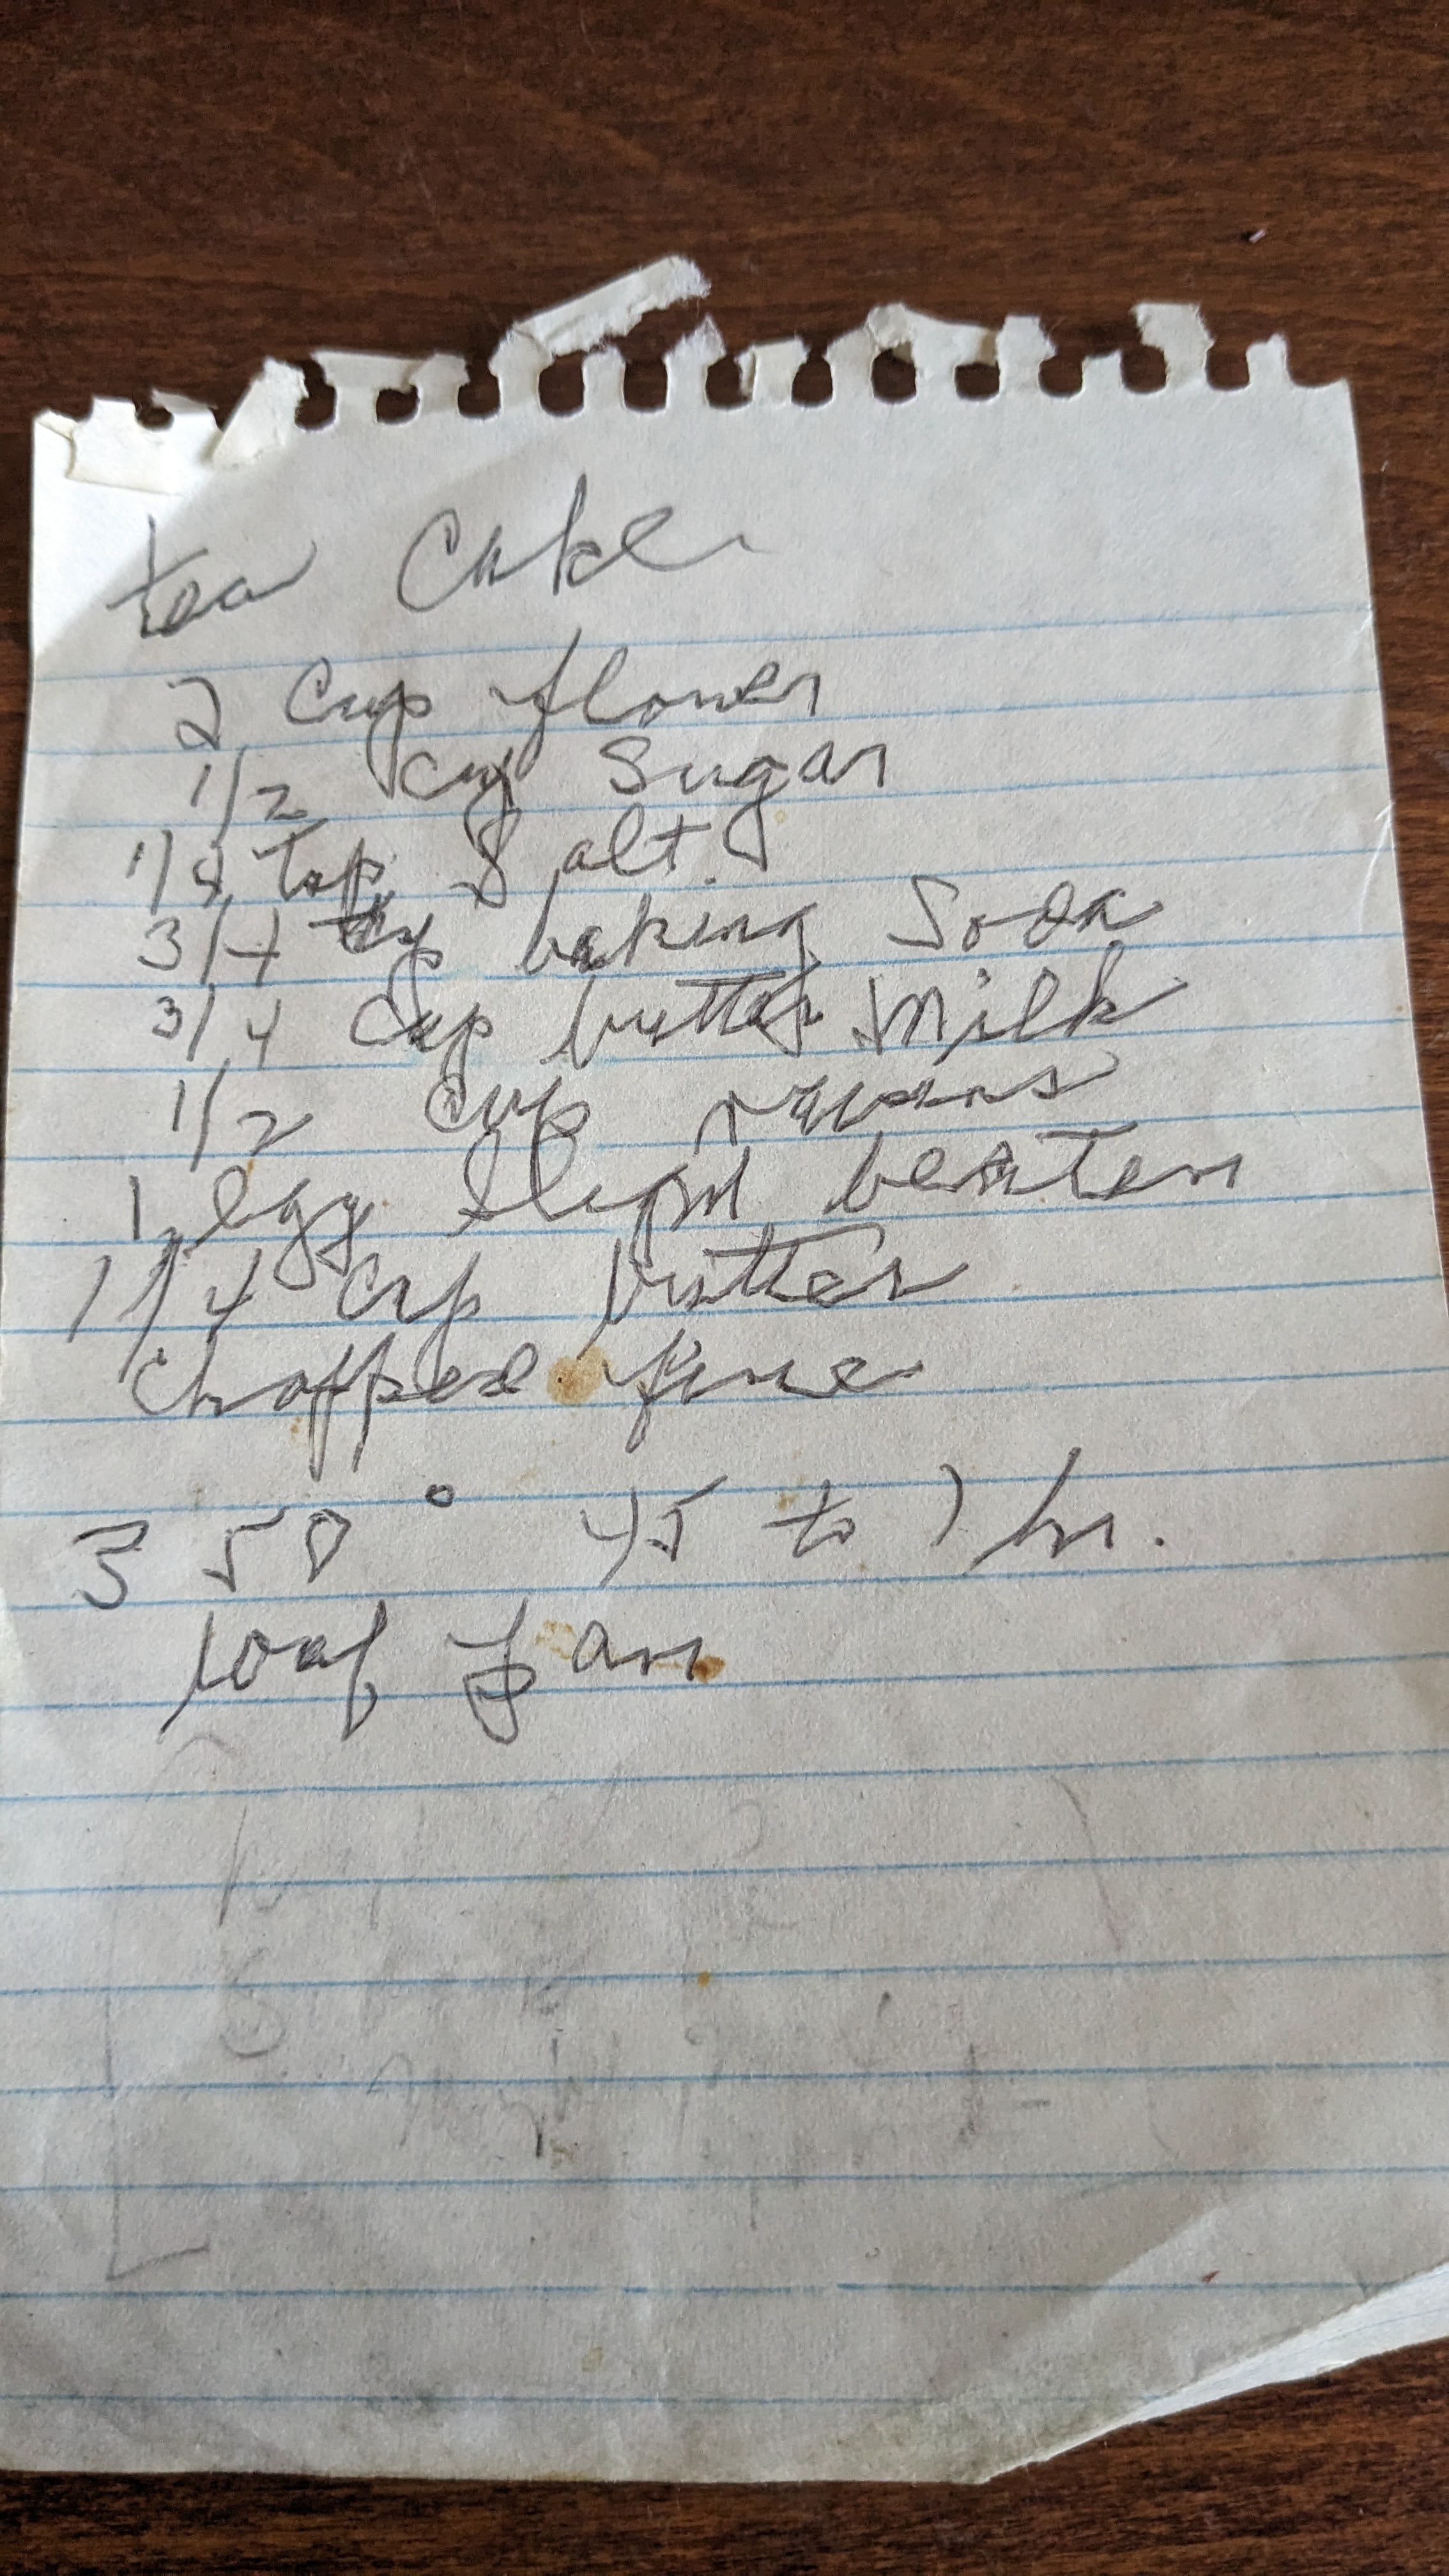 tea Cake
2 Cup flower
1/2 cup Sugar
1/4 Tsp Salt.
3/4 tsp baking Soda
3/4 Cup butter Milk
1/2 Cup
1 egg beaten
1/4 cup butter
Chopped fine
350° 45 to 1 hr.
loaf pan